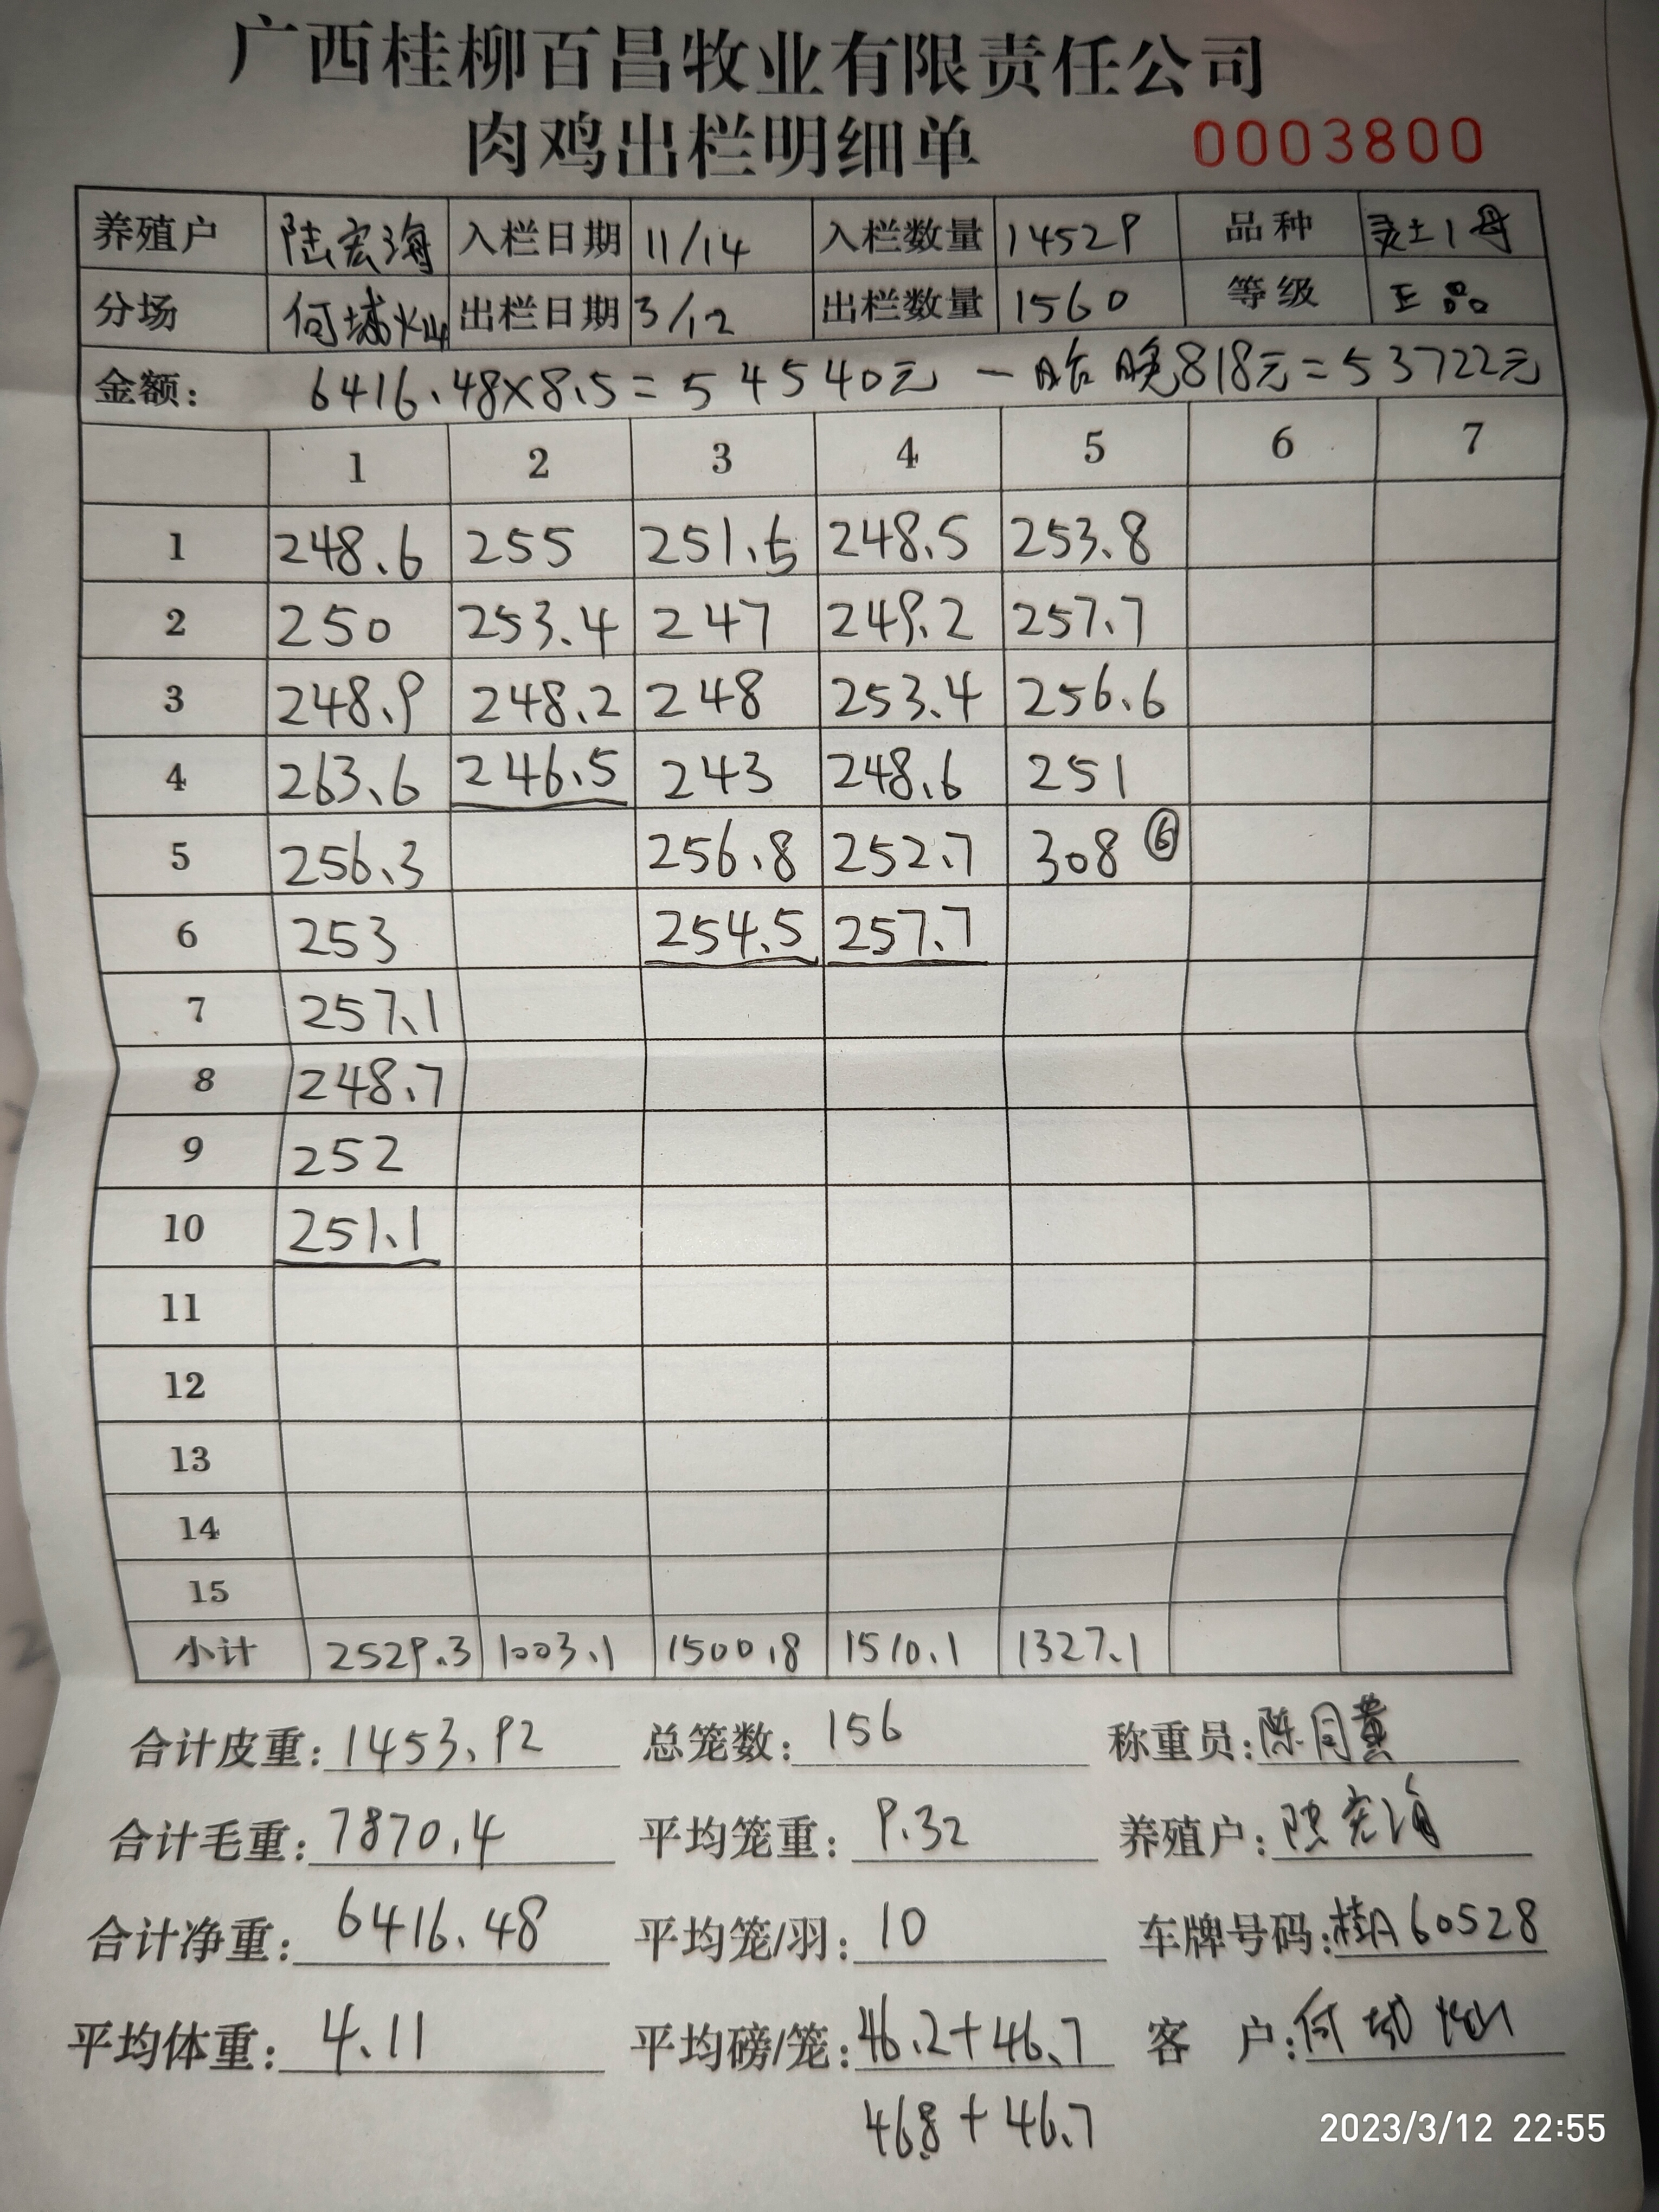 广西桂柳百昌牧业有限责任公司
肉鸡出栏明细单 0003800
养殖户 陆宏海 入栏日期 11/14 入栏数量 14529 品种 灵土1母
分场 何城灿 出栏日期 3/12 出栏数量 1560 等级 正品
金额： 6416.48×8.5=54540元 — 818元=53722元
1 2 3 4 5 6 7
1 248.6 255 251.5 248.5 253.8
2 250 253.4 247 249.2 257.7
3 248.9 248.2 248 253.4 256.6
4 263.6 246.5 243 248.6 251
5 256.3 256.8 252.7 308 ⑥
6 253 254.5 257.7
7 257.1
8 248.7
9 252
10 251.1
11
12
13
14
15
小计 2529.3 1003.1 1500.8 1510.1 1327.1
合计皮重：1453.92 总笼数：156 称重员：陈同黄
合计毛重：7870.4 平均笼重：9.32 养殖户：陆宏海
合计净重：6416.48 平均笼/羽：10 车牌号码：桂A60528
平均体重：4.11 平均磅/笼：46.2+46.7 客 户：何城灿
46.8+46.7
2023/3/12 22:55